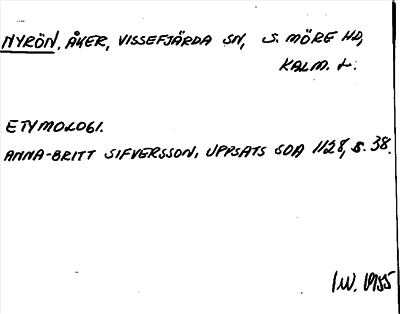 NYRÖN, ÅKER, VISSEFJÄRDA SN, S. MÖRE HD,
KALM. L.
ETYMOLOGI.
ANNA-BRITT SIFVERSSON, UPPSATS SOA 1128, S. 38.
I.W. 1955